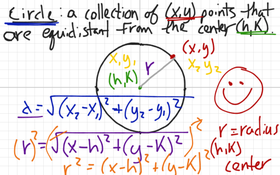 Circle: a collection of (x,y) points that
are equidistant from the center (h,K).
(x,y)
x,y,
x₂y₂
(h,K)
r
d = √(x₂-x₁)² + (y₂-y₁)²
(r)² = (√(x-h)² + (y-K)²)²
r² = (x-h)² + (y-K)²
r = radius
(h,K)
center